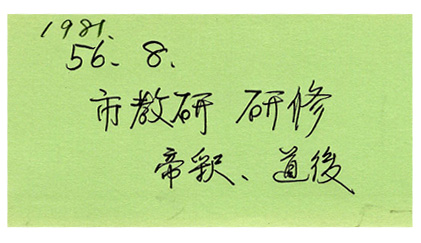 1981.
56. 8.
市教研 研修
帝釈、道後